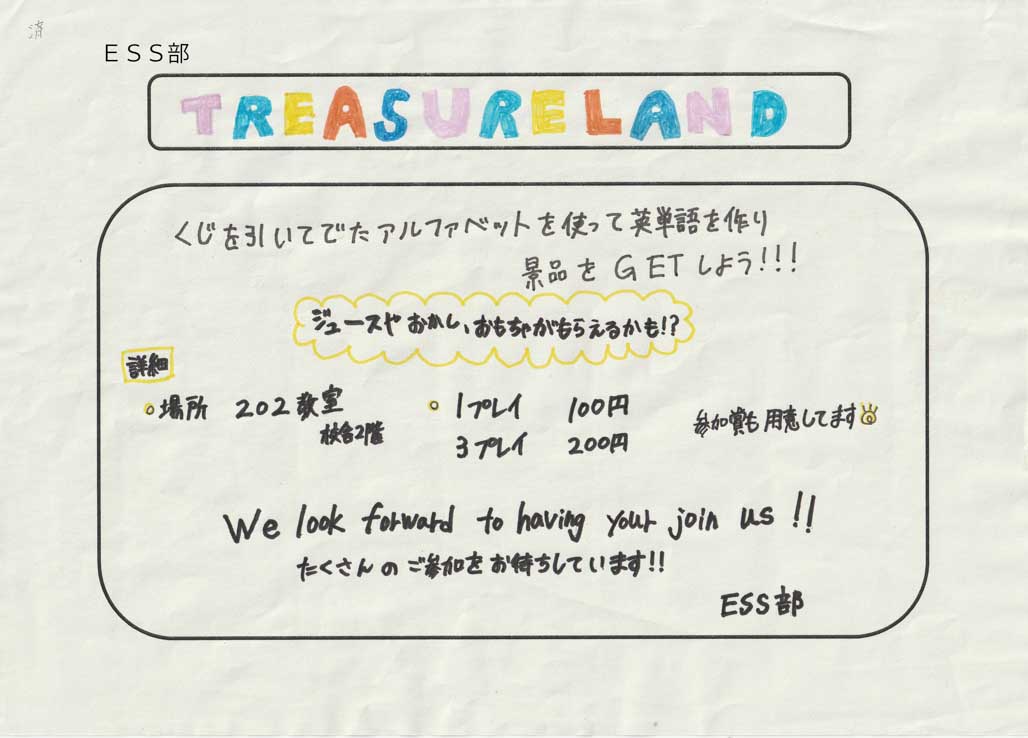 済
ESS部
TREASURELAND
くじを引いてでたアルファベットを使って英単語を作り
景品をGETしよう!!!
ジュースやおかし、おもちゃがもらえるかも!?
詳細
場所 202教室
校舎2階
1プレイ 100円
3プレイ 200円
参加賞も用意してます
We look forward to having your join us!!
たくさんのご参加をお待ちしています!!
ESS部